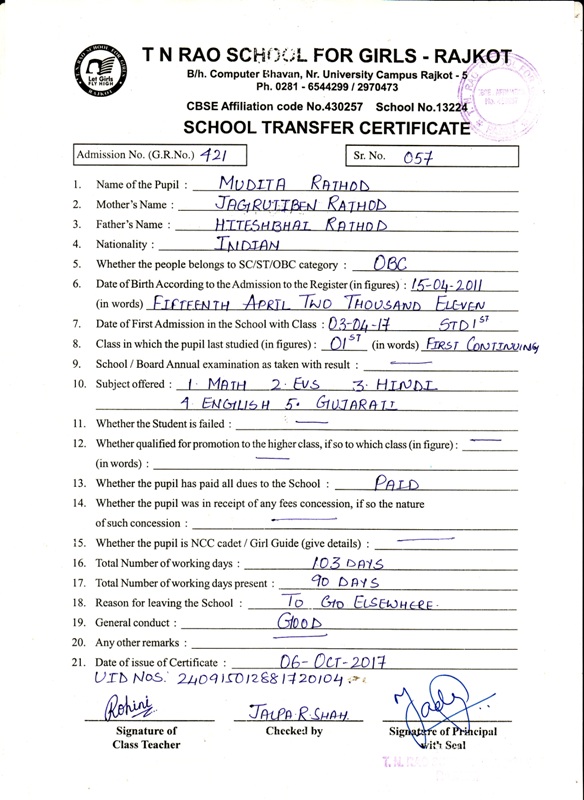 T N RAO SCHOOL FOR GIRLS - RAJKOT
Let Girls
FLY HIGH
B/h. Computer Bhavan, Nr. University Campus Rajkot - 5
Ph. 0281 - 6544299 / 2970473
CBSE Affiliation code No.430257 School No.13224
SCHOOL TRANSFER CERTIFICATE
Admission No. (G.R.No.) 421 Sr. No. 057
1. Name of the Pupil : MUDITA RATHOD
2. Mother's Name : JAGRUTIBEN RATHOD
3. Father's Name : HITESHBHAI RATHOD
4. Nationality : INDIAN
5. Whether the people belongs to SC/ST/OBC category : OBC
6. Date of Birth According to the Admission to the Register (in figures) : 15-04-2011
(in words) FIFTEENTH APRIL TWO THOUSAND ELEVEN
7. Date of First Admission in the School with Class : 03-04-17 STD 1ST
8. Class in which the pupil last studied (in figures) : 01ST (in words) FIRST CONTINUING
9. School / Board Annual examination as taken with result : —
10. Subject offered : 1. MATH 2. EVS 3. HINDI
4. ENGLISH 5. GUJARATI
11. Whether the Student is failed : —
12. Whether qualified for promotion to the higher class, if so to which class (in figure) : —
(in words) : —
13. Whether the pupil has paid all dues to the School : PAID
14. Whether the pupil was in receipt of any fees concession, if so the nature
of such concession : —
15. Whether the pupil is NCC cadet / Girl Guide (give details) : —
16. Total Number of working days : 103 DAYS
17. Total Number of working days present : 90 DAYS
18. Reason for leaving the School : TO GO ELSEWHERE.
19. General conduct : GOOD
20. Any other remarks : —
21. Date of issue of Certificate : 06-OCT-2017
UID NOS: 240915012881720104
Rohini JALPA.R.SHAH.
Signature of Checked by Signature of Principal
Class Teacher with Seal